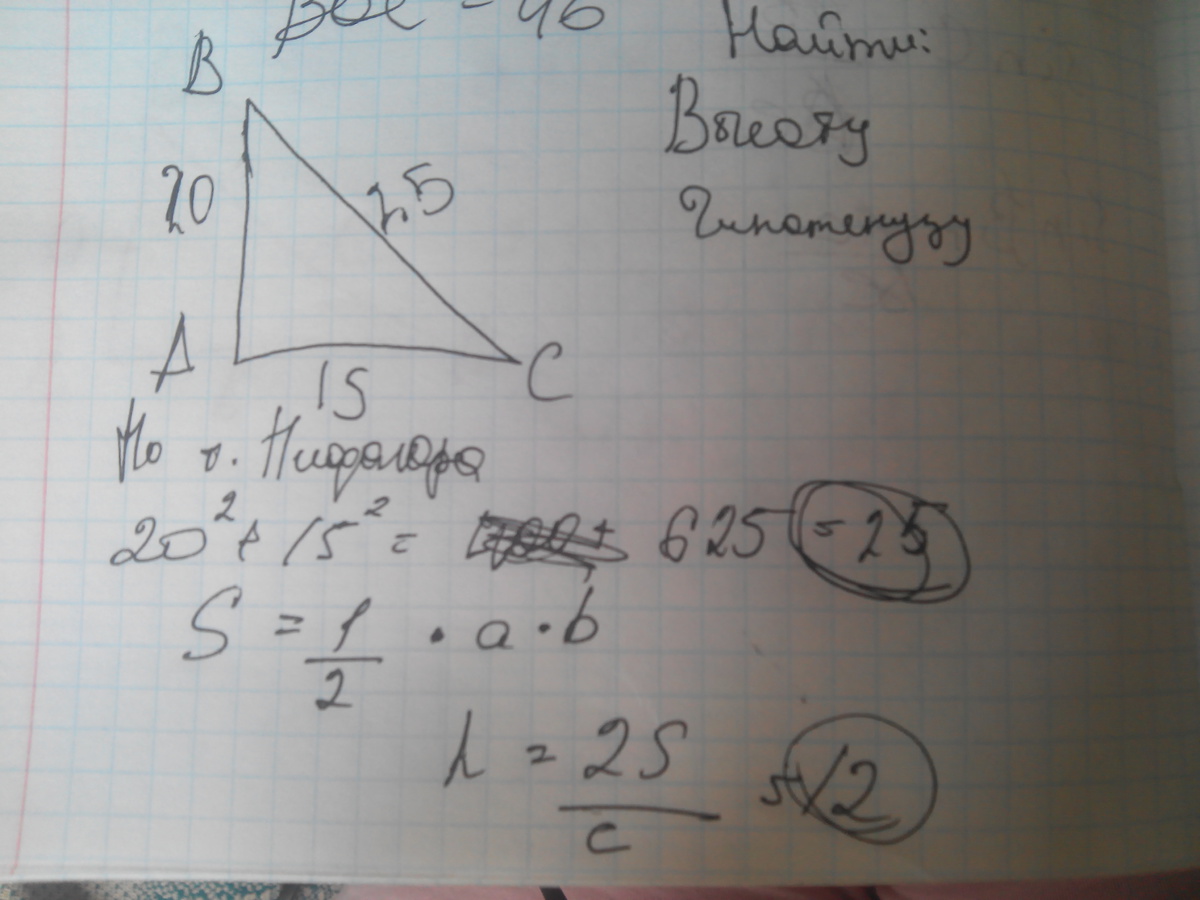 = 46
Найти:
Высоту
Гипотенузу
B
20
25
A
15
C
По т. Пифагора
20² + 15² = 625 = 25
S = 1/2 · a · b
h = 2S/c = 12